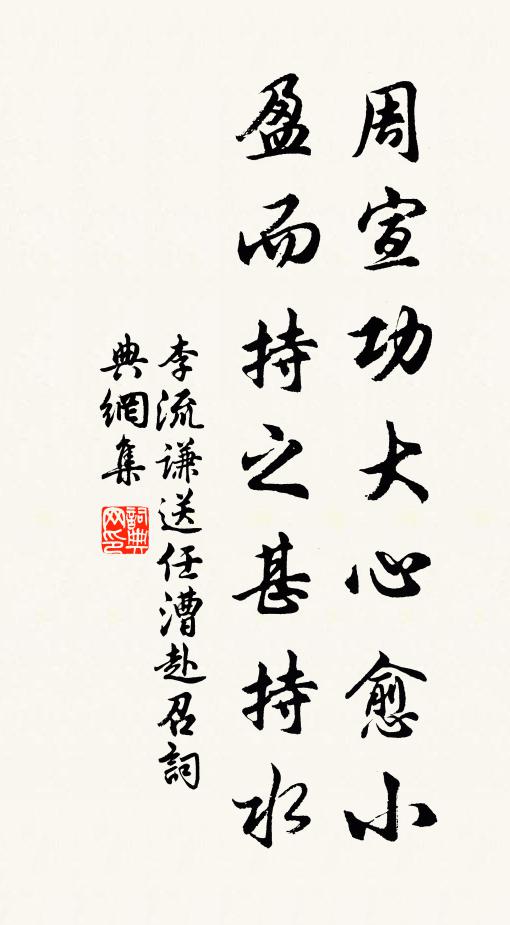 周宣功大心愈小
盈而持之甚持水
李流谦送任漕赴召詞
典網集
詞典網印